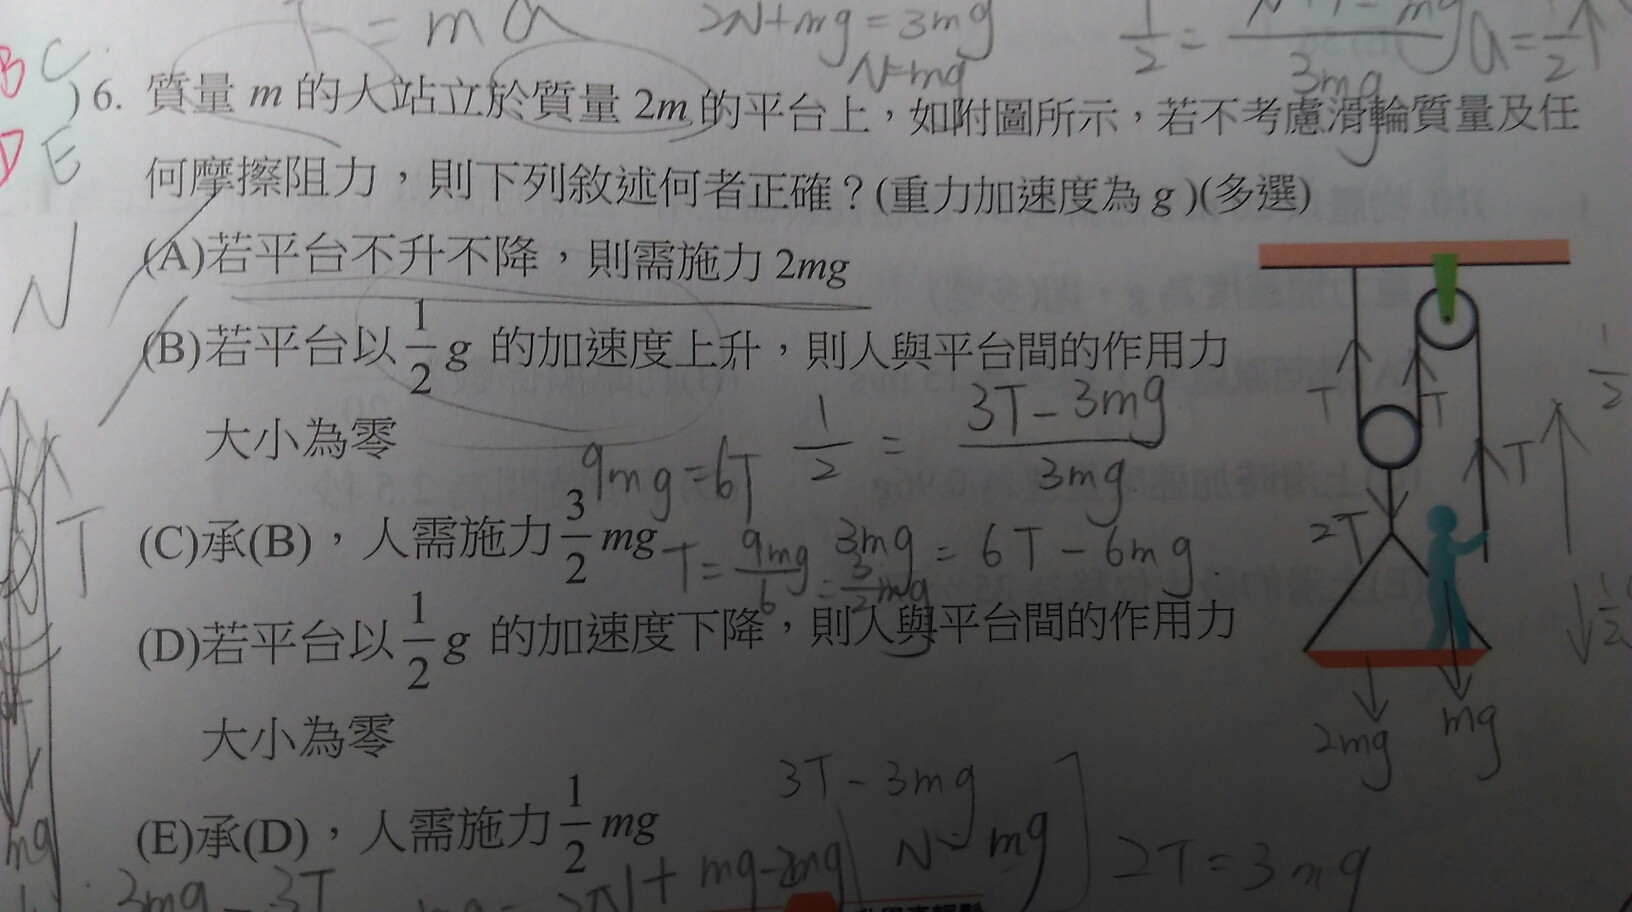 T = ma
2N+mg = 3mg
N=mg
B C
D E
)6. 質量 m 的人站立於質量 2m 的平台上，如附圖所示，若不考慮滑輪質量及任
何摩擦阻力，則下列敘述何者正確？(重力加速度為 g )(多選)
(A)若平台不升不降，則需施力 2mg
(B)若平台以 1/2 g 的加速度上升，則人與平台間的作用力
大小為零
1/2 = (3T - 3mg)/3mg
9mg = 6T
(C)承(B)，人需施力 3/2 mg
3mg = 6T - 6mg
T = 9mg/6 = 3/2 mg
(D)若平台以 1/2 g 的加速度下降，則人與平台間的作用力
大小為零
(E)承(D)，人需施力 1/2 mg
3T - 3mg
N = mg
2T = 3mg
3mg - 3T
N
T
mg
T
T
T
2T
2mg
mg